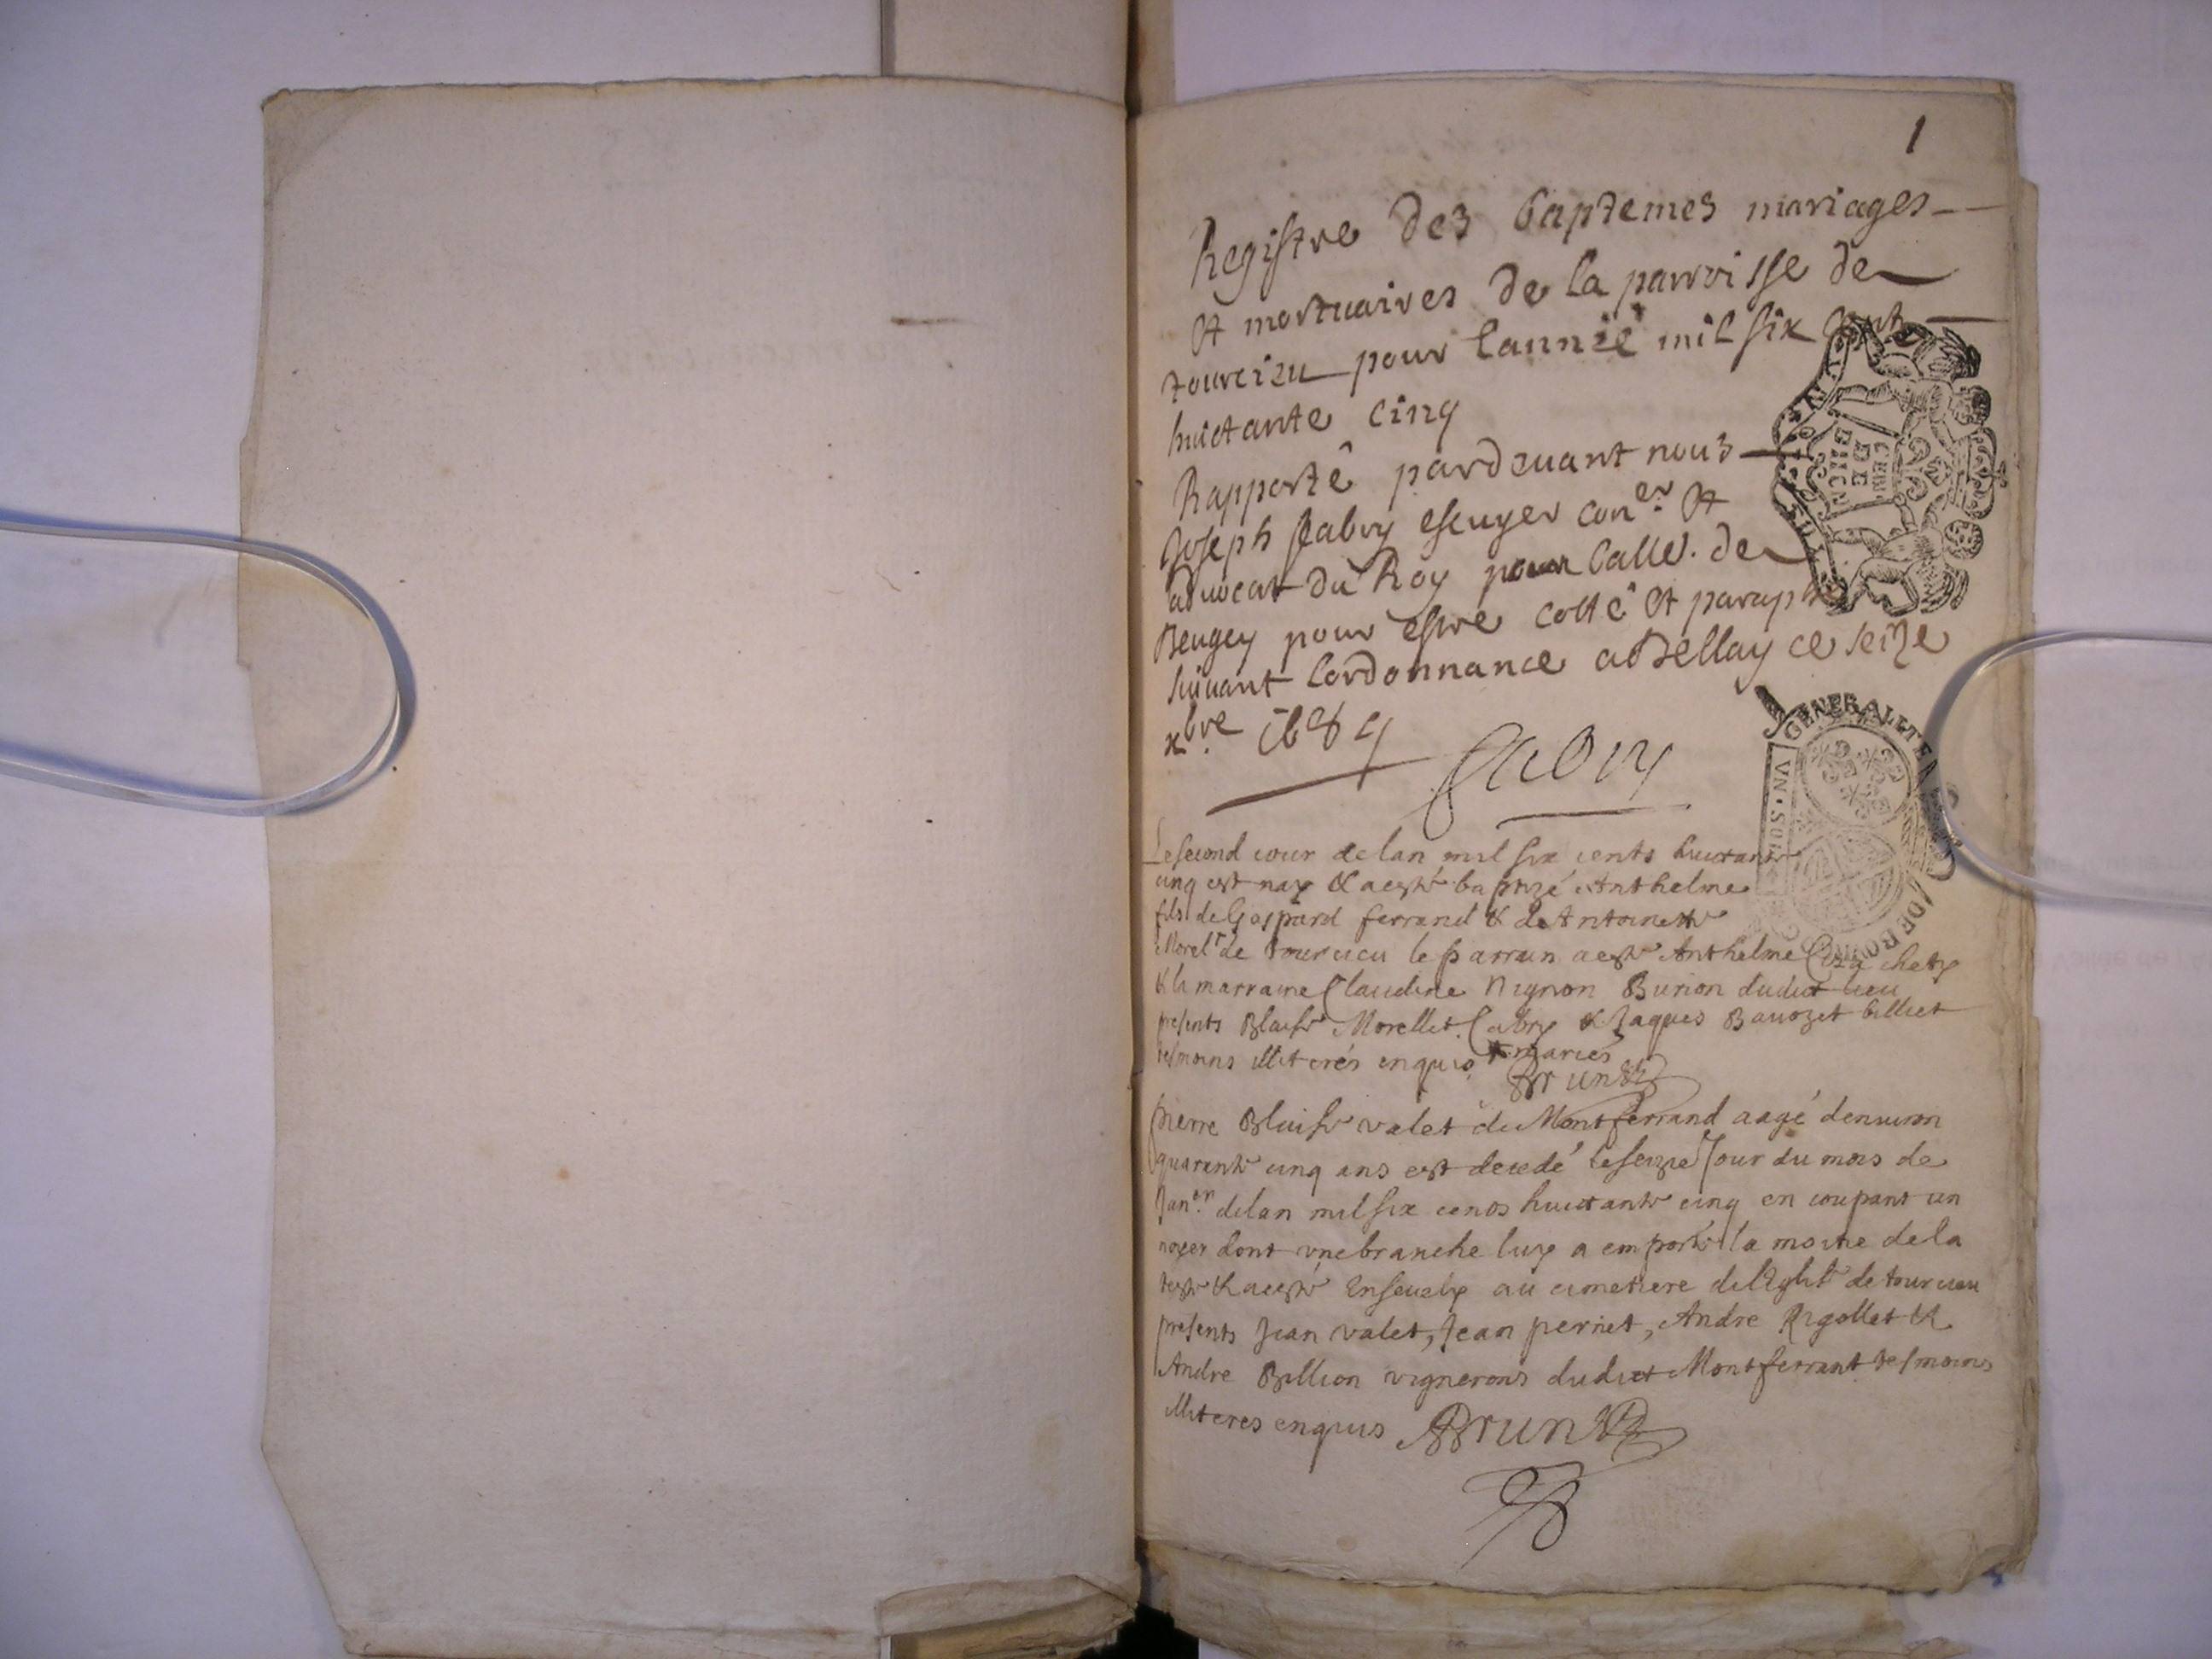 1
Registre des baptemes mariages
et mortuaires de la parroisse de
tourcieu pour lannée mil six cents
huictante cinq
Rapporté pardeuant nous
Joseph fabry escuyer con.er et
aduocat du Roy pour balle. de
Beugey pour estre cotté et paraphé
suiuant lordonnance a Bellay ce seize
xbre. 1684
fabry
GENERALITE
VN · SOL
DE BOVRG
Le second iour de lan mil six cents huictante
cinq est nay & a esté baptizé Anthelme
fils de Gaspard ferrand & de Antoinette
Morelt de Tourcieu le parrain a esté Anthelme
& la marraine Claudine Nignon Burion dudict lieu
presents Blaise Morellet & Jaques Bauozet billiet
tesmoins illiterés enquis
* mariés
Brunet
pierre Blaise valet de Montferrand aagé denuiron
quarante cinq ans est decedé le seizie Jour du mois de
Jan.er de lan mil six cents huictante cinq en coupant un
noyer dont vne branche luy a emporté la moitié de la
teste & a esté Enseuely au cimetiere de lEglise de tourcieu
presents Jean valet, Jean perret, Andre Rigollet &
Andre Billion vignerons dudict Montferrant tesmoins
illiteres enquis Brunet